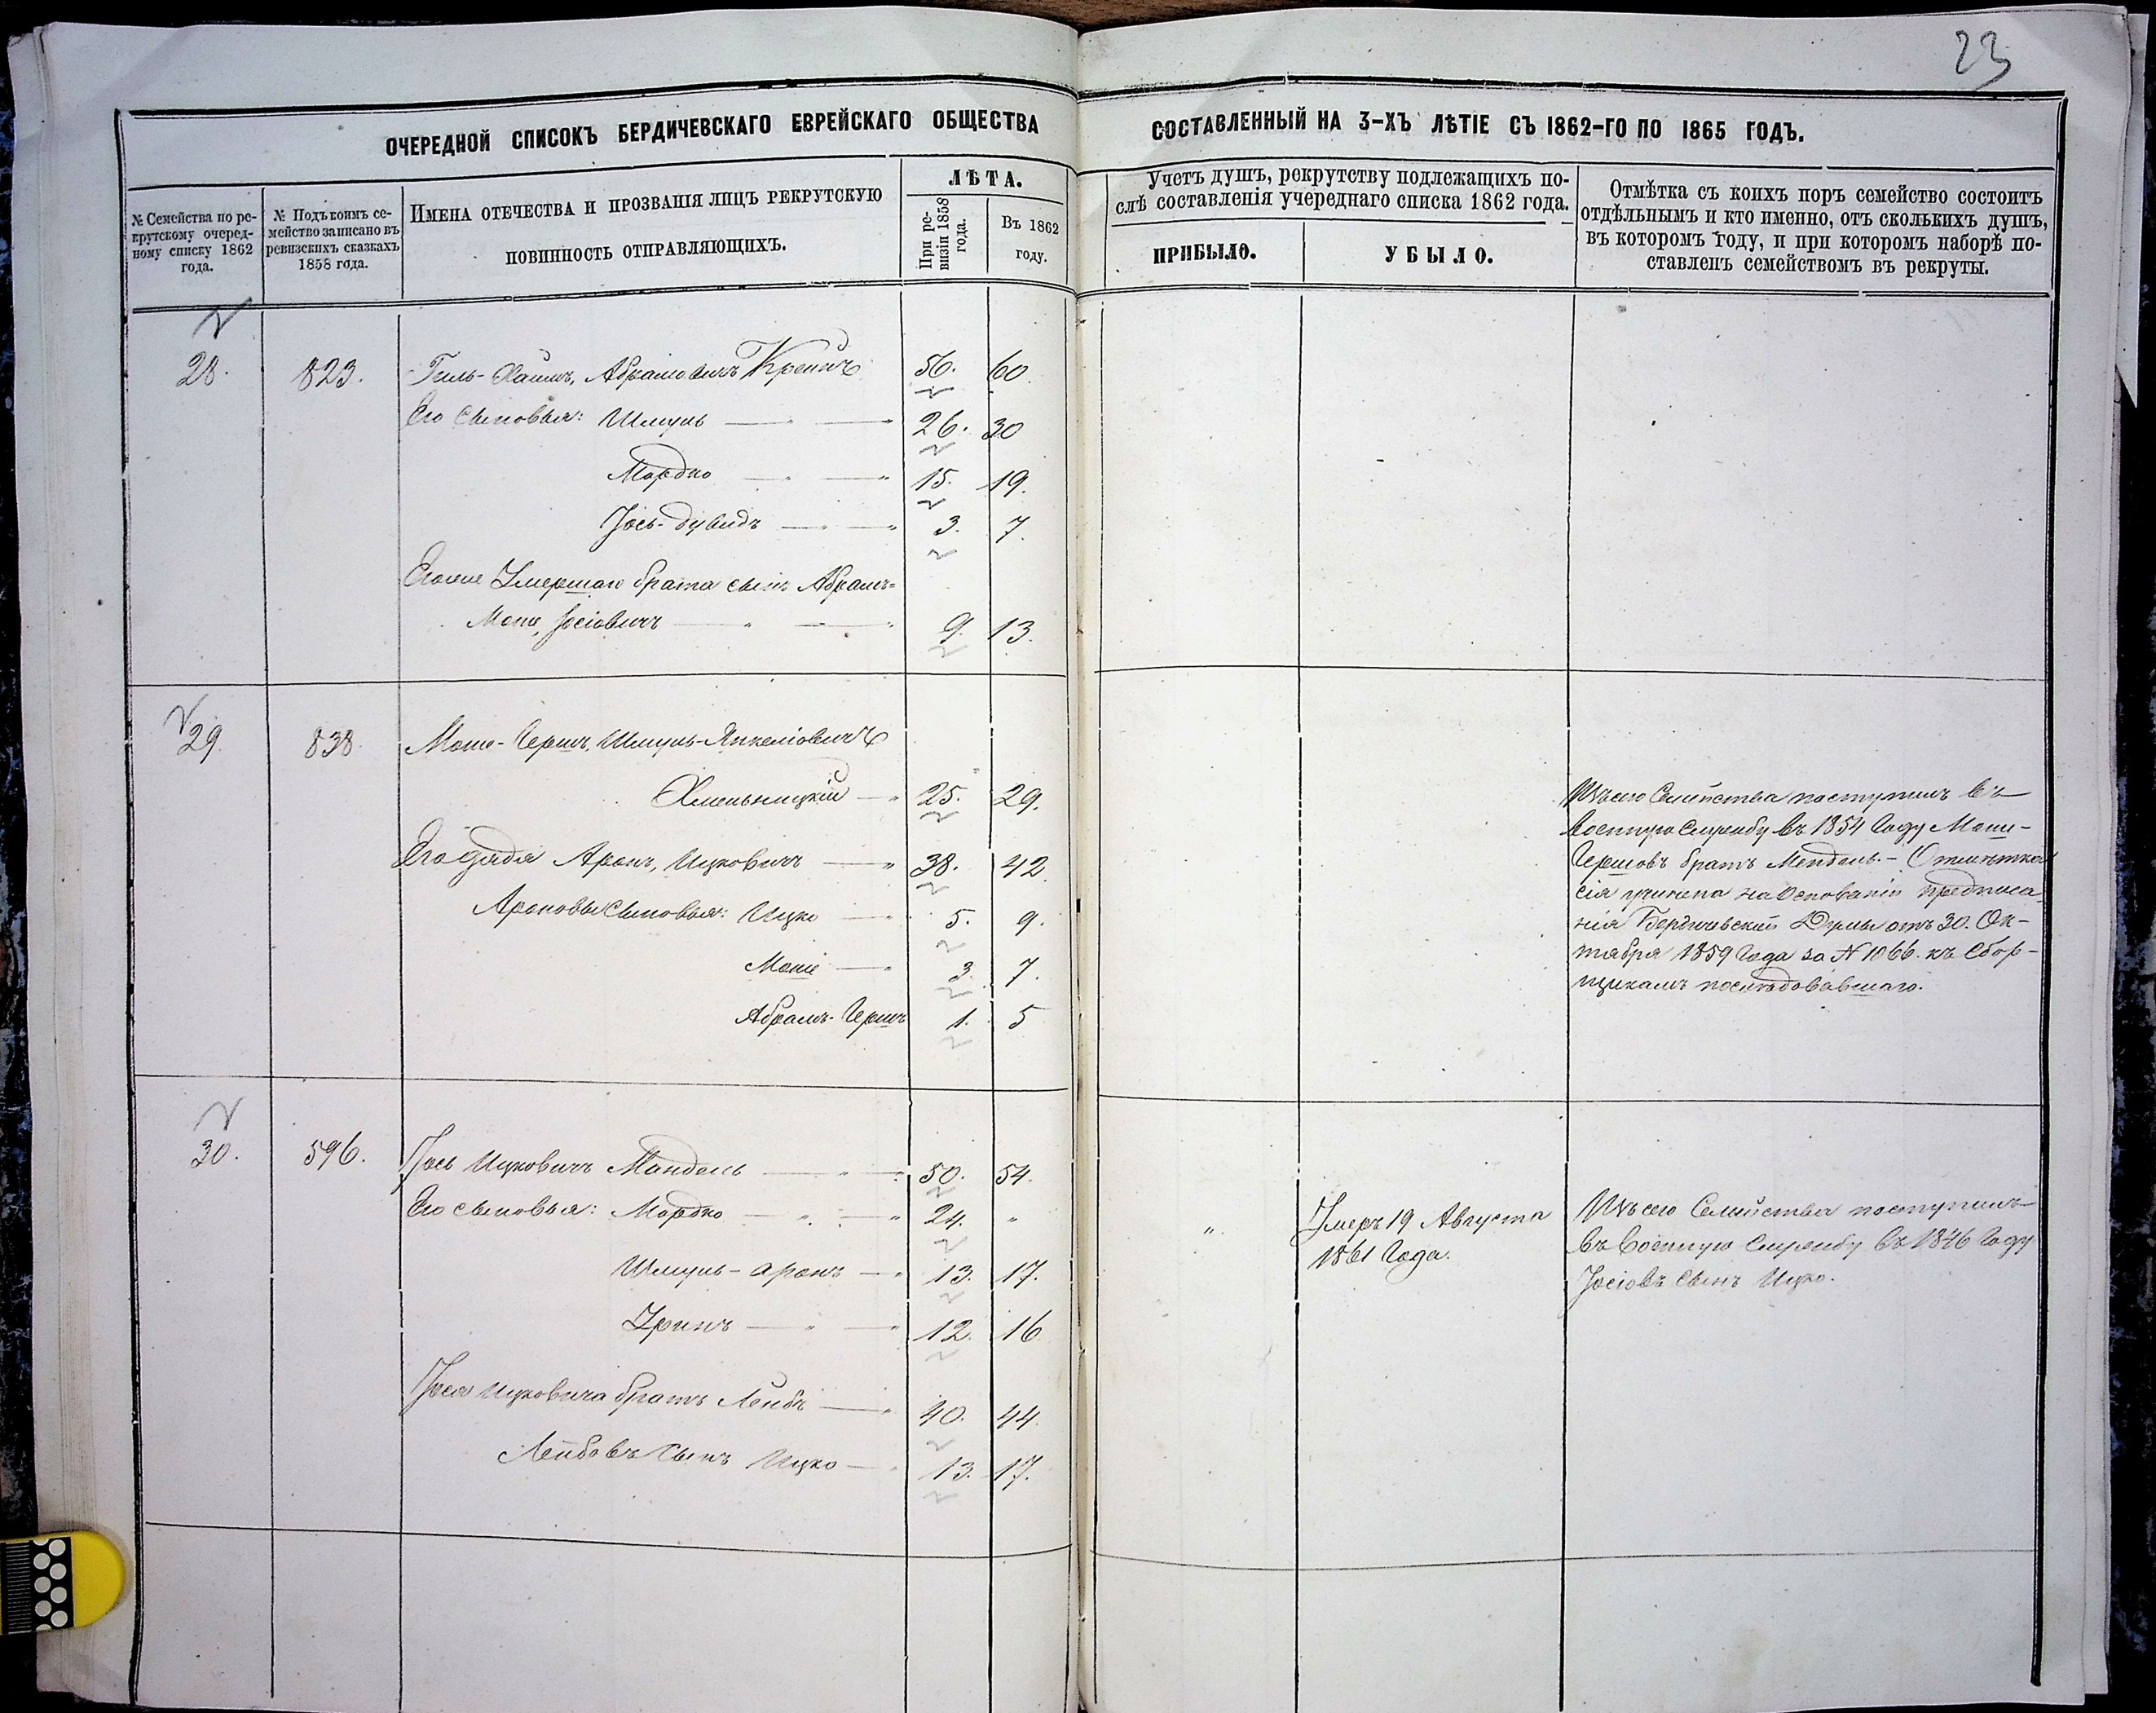 23
ОЧЕРЕДНОЙ СПИСОКЪ БЕРДИЧЕВСКАГО ЕВРЕЙСКАГО ОБЩЕСТВА
СОСТАВЛЕННЫЙ НА 3-ХЪ ЛѢТІЕ СЪ 1862-ГО ПО 1865 ГОДЪ.
№ Семейства по ре-
крутскому очеред-
ному списку 1862
года.
№ Подъ коимъ се-
мейство записано въ
ревизскихъ сказкахъ
1858 года.
ИМЕНА ОТЕЧЕСТВА И ПРОЗВАНІЯ ЛИЦЪ РЕКРУТСКУЮ
ПОВИННОСТЬ ОТПРАВЛЯЮЩИХЪ.
ЛѢТА.
При ре-
визіи 1858
года.
Въ 1862
году.
Учетъ душъ, рекрутству подлежащихъ по-
слѣ составленія учереднаго списка 1862 года.
ПРИБЫЛО.
УБЫЛО.
Отмѣтка съ коихъ поръ семейство состоитъ
отдѣльнымъ и кто именно, отъ сколькихъ душъ,
въ которомъ году, и при которомъ наборѣ по-
ставленъ семействомъ въ рекруты.
28. 823. Гиль-Хаимъ, Абрамовичъ Крейнъ 56. 60.
Его сыновья: Шмуль — — 26. 30
Мордко — " — " 15. 19.
Іось-дувидъ — " — " 3. 7.
Егоже Умершаго брата сынъ Абрамъ=
Моше, Іосіовичъ — " — " 9. 13.
29. 838. Моше-Гершъ, Шмуль-Янкеліовичъ
Хмельницкій — " 25. 29.
Его дядя Аронъ, Ицковичъ — " 38. 42.
Ароновы сыновья: Ицко — " 5. 9.
Моше — " 3. 7.
Абрамъ-Гершъ 1. 5
Изъ сего Семейства поступилъ въ
военную службу въ 1854 Году Моше-
Гершовъ братъ Мендель. - Отмѣтка
сія учинена на Основаніи предписа-
нія Бердичевской Думы отъ 30. Ок-
тября 1859 Года за № 1066. къ Сбор-
щикамъ послѣдовавшаго.
30. 596. Іось Ицковичъ Мандель — " — 50. 54.
Его сыновья: Мордко — " — " 24. "
" Умеръ 19 Августа
1861 Года.
Изъ сего Семейства поступилъ
въ военную службу въ 1846 Году
Іосіовъ сынъ Ицко.
Шмуль-аронъ — " 13. 17.
Уринъ — " — " 12. 16
Іося Ицковича братъ Лейбъ — " 40. 44.
Лейбовъ сынъ Ицко — " 13. 17.